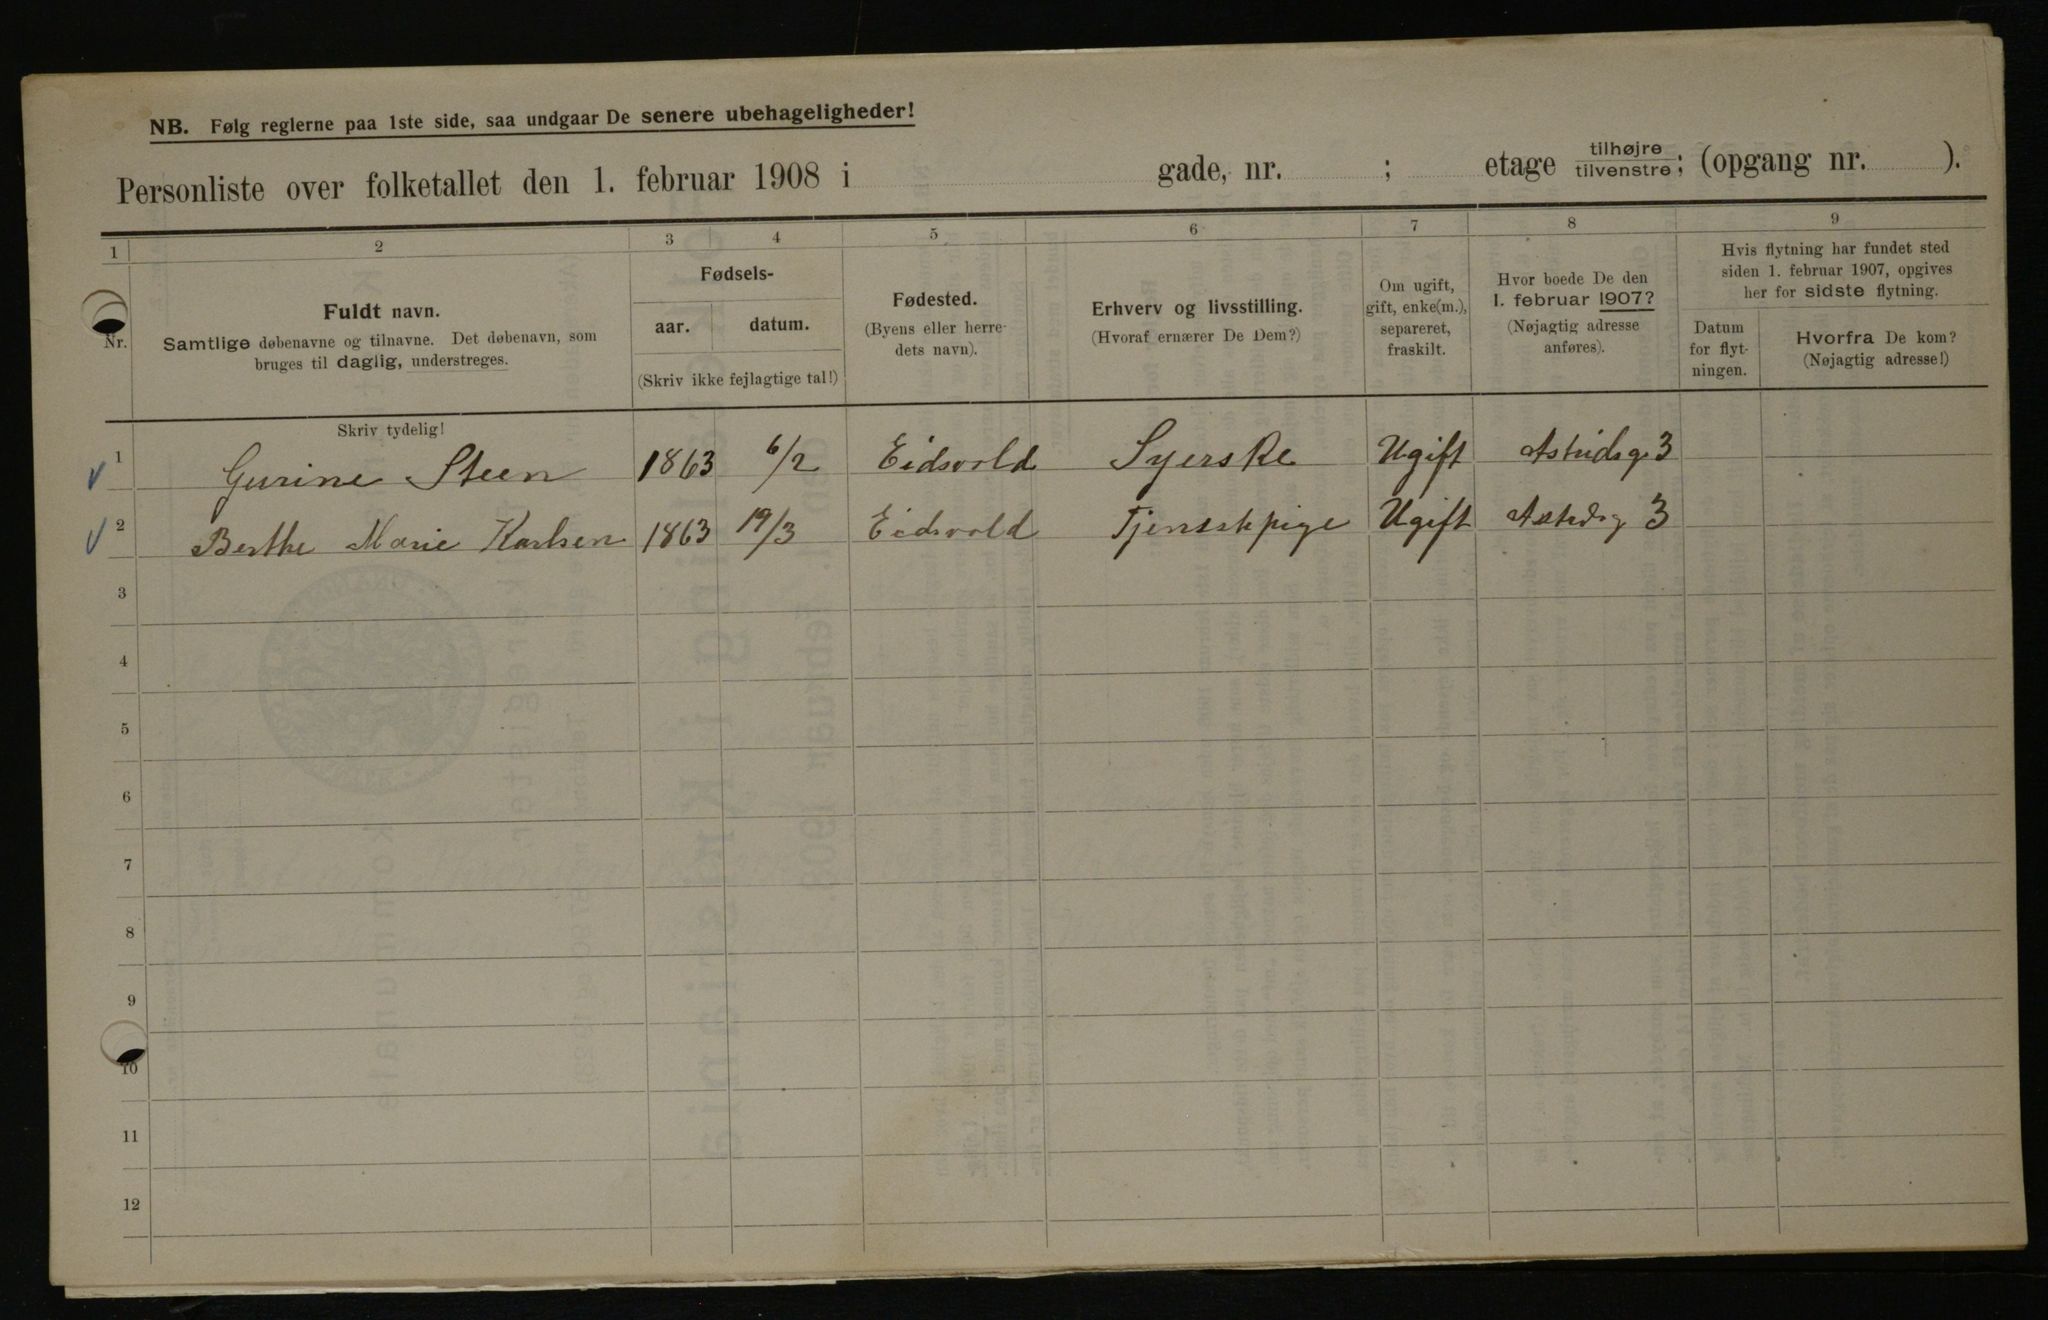 NB. Følg reglerne paa 1ste side, saa undgaar De senere ubehageligheder!
Personliste over folketallet den 1. februar 1908 i gade, nr. ; etage tilhøjre tilvenstre; (opgang nr. ).
1 2 3 4 5 6 7 8 9
Nr.
Fuldt navn.
Samtlige døbenavne og tilnavne. Det døbenavn, som
bruges til daglig, understreges.
Fødsels-
aar. datum.
(Skriv ikke fejlagtige tal!)
Fødested.
(Byens eller herre-
dets navn).
Erhverv og livsstilling.
(Hvoraf ernærer De Dem?)
Om ugift,
gift, enke(m.),
separeret,
fraskilt.
Hvor boede De den
1. februar 1907?
(Nøjagtig adresse
anføres).
Hvis flytning har fundet sted
siden 1. februar 1907, opgives
her for sidste flytning.
Datum
for flyt-
ningen.
Hvorfra De kom?
(Nøjagtig adresse!)
Skriv tydelig!
1 Gurine Steen 1863 6/2 Eidsvold Syerske Ugift Astridsg 3
2 Berthe Marie Karlsen 1863 19/3 Eidsvold Tjenestepige Ugift 3
3
4
5
6
7
8
9
10
11
12